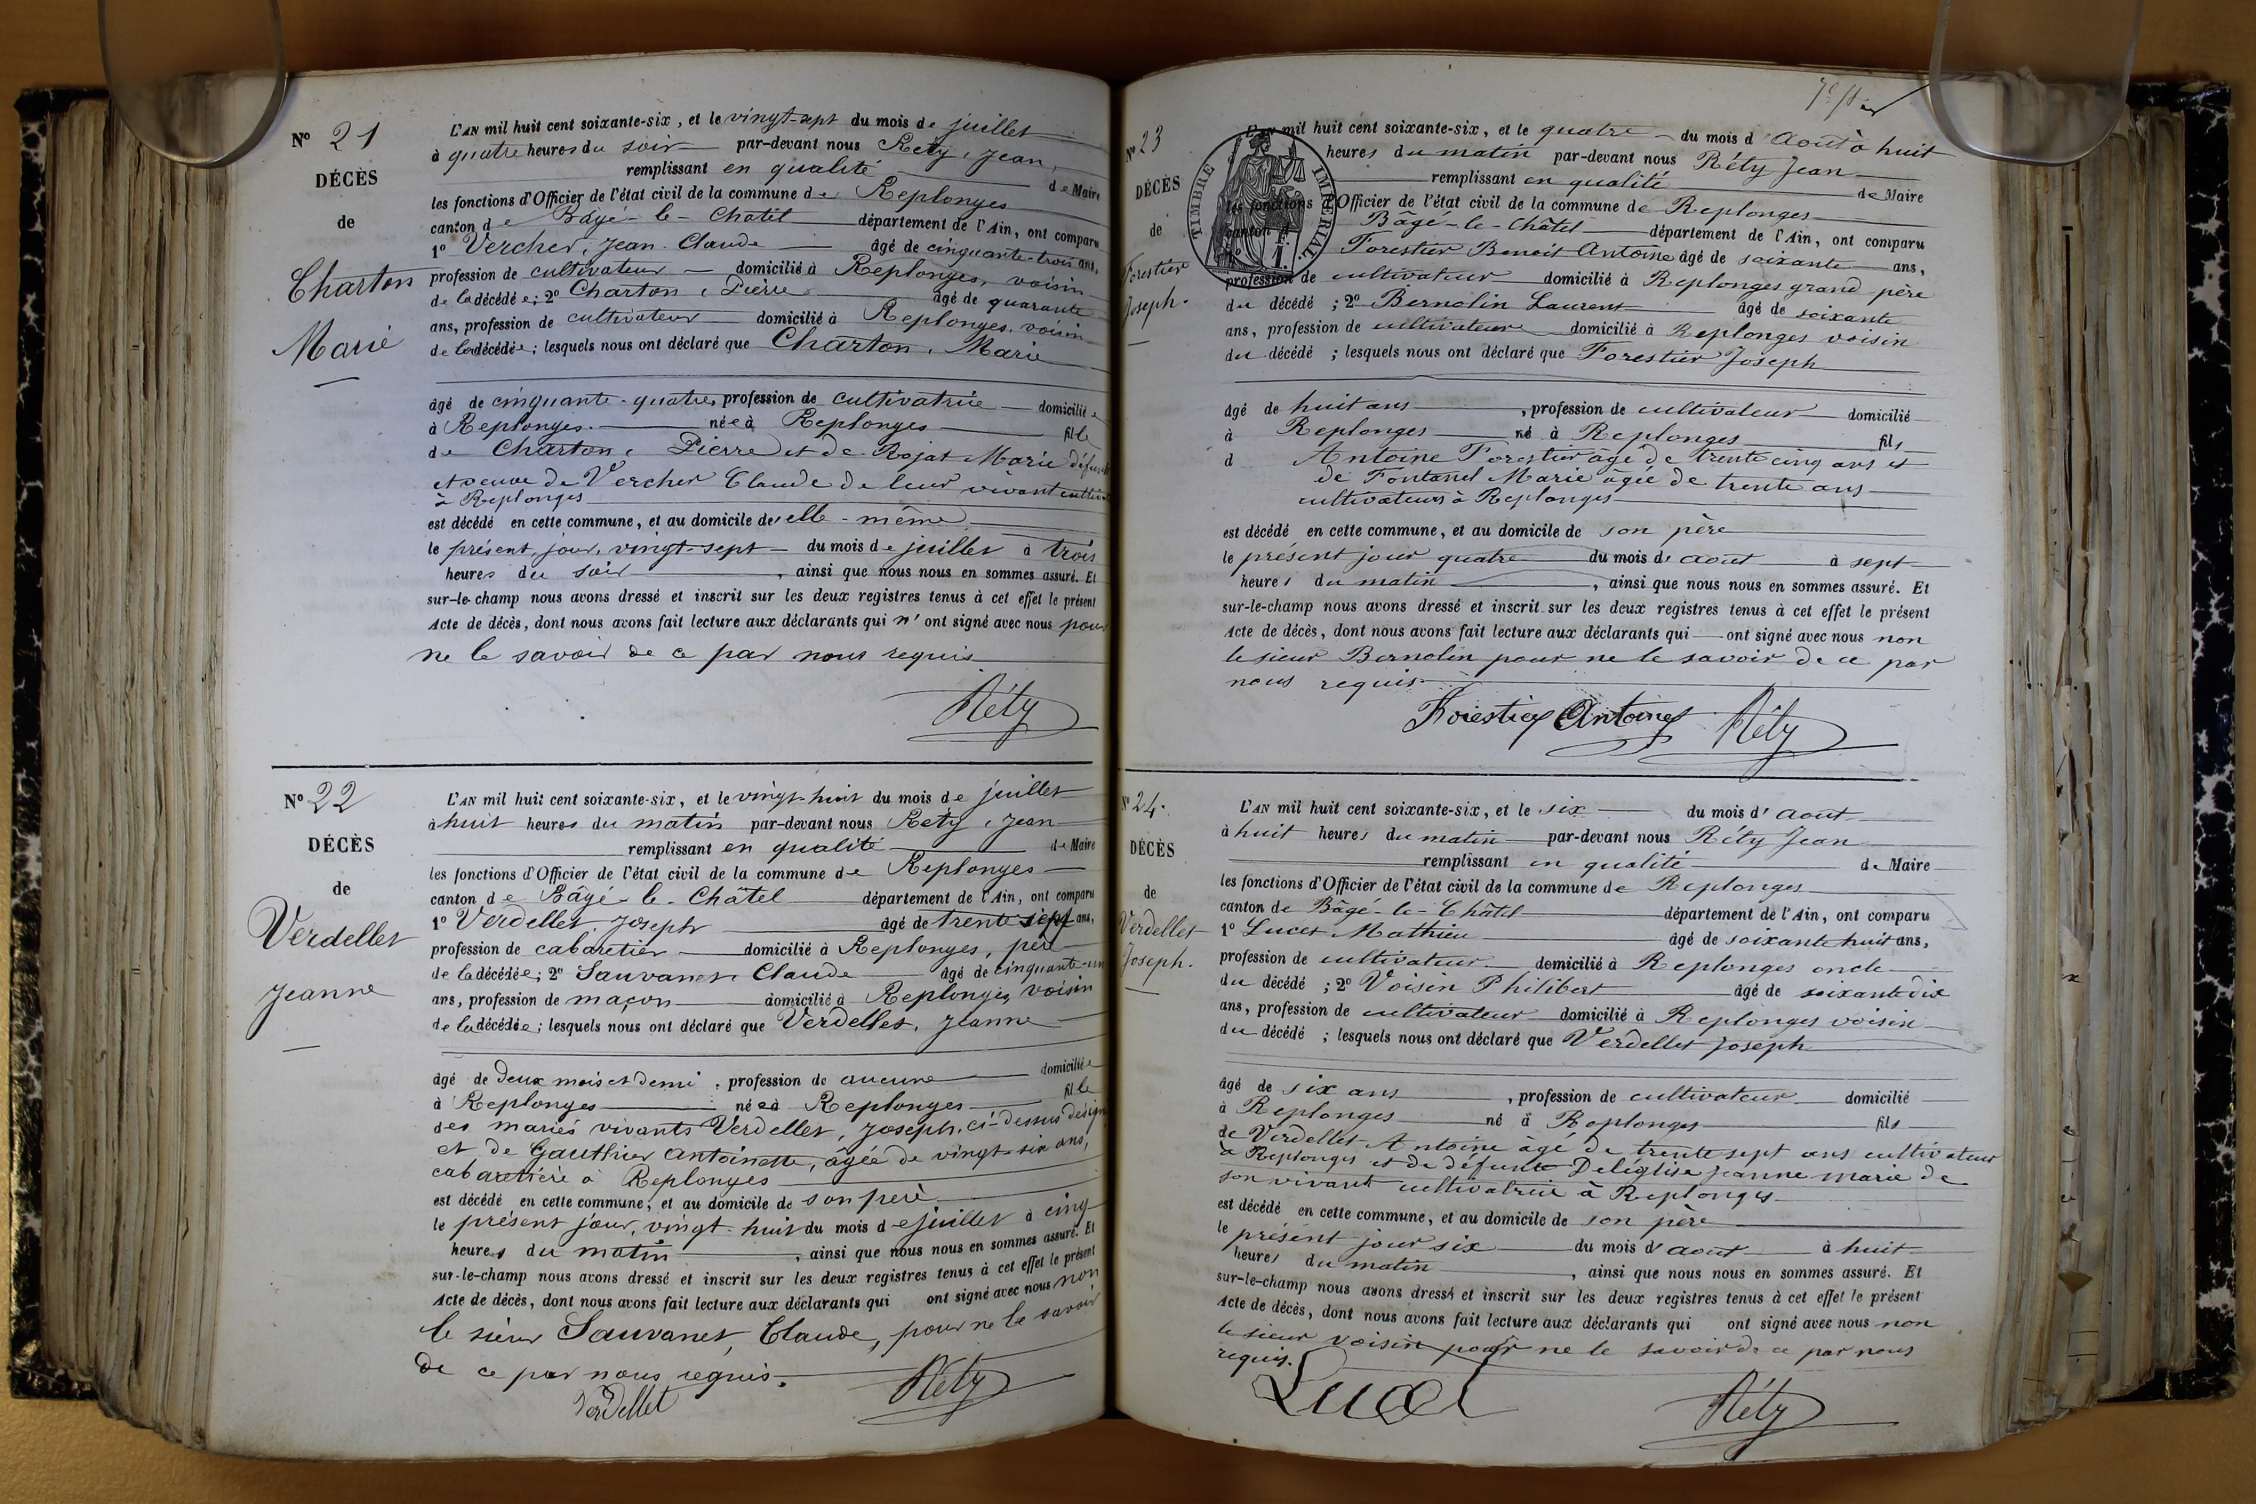 N° 21
DÉCÈS
de
Charton
Marie
L'AN mil huit cent soixante-six, et le vingt-sept du mois de juillet
à quatre heures du soir par-devant nous Réty, Jean,
remplissant en qualité de Maire
les fonctions d'Officier de l'état civil de la commune de Replonges
canton de Bâgé-le-Chatel département de l'Ain, ont comparu
1° Vercher, Jean-Claude âgé de cinquante-trois ans,
profession de cultivateur domicilié à Replonges, voisin
de la décédée; 2° Charton, Pierre âgé de quarante
ans, profession de cultivateur domicilié à Replonges, voisin
de la décédée; lesquels nous ont déclaré que Charton, Marie
âgé de cinquante-quatre, profession de cultivatrice domiciliée
à Replonges. née à Replonges fille
de Charton, Pierre et de Rojat Marie défunts
et veuve de Vercher Claude de leur vivant
à Replonges
est décédé en cette commune, et au domicile de elle-même
le présent jour, vingt-sept du mois de juillet à trois
heures du soir, ainsi que nous nous en sommes assuré. Et
sur-le-champ nous avons dressé et inscrit sur les deux registres tenus à cet effet le présent
Acte de décès, dont nous avons fait lecture aux déclarants qui n'ont signé avec nous pour
ne le savoir de ce par nous requis
Réty
N° 22
DÉCÈS
de
Verdellet
Jeanne
L'AN mil huit cent soixante-six, et le vingt-huit du mois de juillet
à huit heures du matin par-devant nous Réty, Jean
remplissant en qualité de Maire
les fonctions d'Officier de l'état civil de la commune de Replonges
canton de Bâgé-le-Châtel département de l'Ain, ont comparu
1° Verdellet, Joseph âgé de trente sept ans,
profession de cabaretier domicilié à Replonges, père
de la décédée; 2° Sauvanet, Claude âgé de cinquante-un
ans, profession de maçon domicilié à Replonges, voisin
de la décédée; lesquels nous ont déclaré que Verdellet, Jeanne
âgé de deux mois et demi, profession de aucune domiciliée
à Replonges née à Replonges fille
des mariés vivants Verdellet, Joseph, ci-dessus désigné
et de Gauthier Antoinette, âgée de vingt-six ans,
cabaretière à Replonges
est décédé en cette commune, et au domicile de son père
le présent jour, vingt-huit du mois de juillet à cinq
heures du matin, ainsi que nous nous en sommes assuré. Et
sur-le-champ nous avons dressé et inscrit sur les deux registres tenus à cet effet le présent
Acte de décès, dont nous avons fait lecture aux déclarants qui ont signé avec nous non
le sieur Sauvanet, Claude, pour ne le savoir
de ce par nous requis.
Verdellet Réty
N° 23
DÉCÈS
de
Forestier
Joseph.
TIMBRE IMPÉRIAL.
L'AN mil huit cent soixante-six, et le quatre du mois d'Aout à huit
heures du matin par-devant nous Réty Jean
remplissant en qualité de Maire
les fonctions d'Officier de l'état civil de la commune de Replonges
canton Bâgé-le-Châtel département de l'Ain, ont comparu
Forestier Benoit Antoine âgé de soixante ans,
profession de cultivateur domicilié à Replonges grand père
du décédé; 2° Bernolin Laurent âgé de soixante
ans, profession de cultivateur domicilié à Replonges voisin
du décédé; lesquels nous ont déclaré que Forestier Joseph
âgé de huit ans, profession de cultivateur domicilié
à Replonges né à Replonges fils
d Antoine Forestier âgé de trente cinq ans et
de Fontanel Marie âgée de trente ans
cultivateurs à Replonges
est décédé en cette commune, et au domicile de son père
le présent jour quatre du mois d'aout à sept
heures du matin, ainsi que nous nous en sommes assuré. Et
sur-le-champ nous avons dressé et inscrit sur les deux registres tenus à cet effet le présent
Acte de décès, dont nous avons fait lecture aux déclarants qui ont signé avec nous non
le sieur Bernolin pour ne le savoir de ce par
nous requis
Forestier Antoine Réty
N° 24.
DÉCÈS
de
Verdellet
Joseph.
L'AN mil huit cent soixante-six, et le six du mois d'aout
à huit heures du matin par-devant nous Réty Jean
remplissant en qualité de Maire
les fonctions d'Officier de l'état civil de la commune de Replonges
canton de Bâgé-le-Châtel département de l'Ain, ont comparu
1° Lucet Mathieu âgé de soixante huit ans,
profession de cultivateur domicilié à Replonges oncle
du décédé; 2° Voisin Philibert âgé de soixante dix
ans, profession de cultivateur domicilié à Replonges voisin
du décédé; lesquels nous ont déclaré que Verdellet Joseph
âgé de six ans, profession de cultivateur domicilié
à Replonges né à Replonges fils
de Verdellet Antoine âgé de trente sept ans cultivateur
à Replonges et de défunte Deléglise Jeanne Marie de
son vivant cultivatrice à Replonges
est décédé en cette commune, et au domicile de son père
le présent jour six du mois d'aout à huit
heures du matin, ainsi que nous nous en sommes assuré. Et
sur-le-champ nous avons dressé et inscrit sur les deux registres tenus à cet effet le présent
Acte de décès, dont nous avons fait lecture aux déclarants qui ont signé avec nous non
le sieur voisin pour ne le savoir de ce par nous
requis.
Lucet Réty